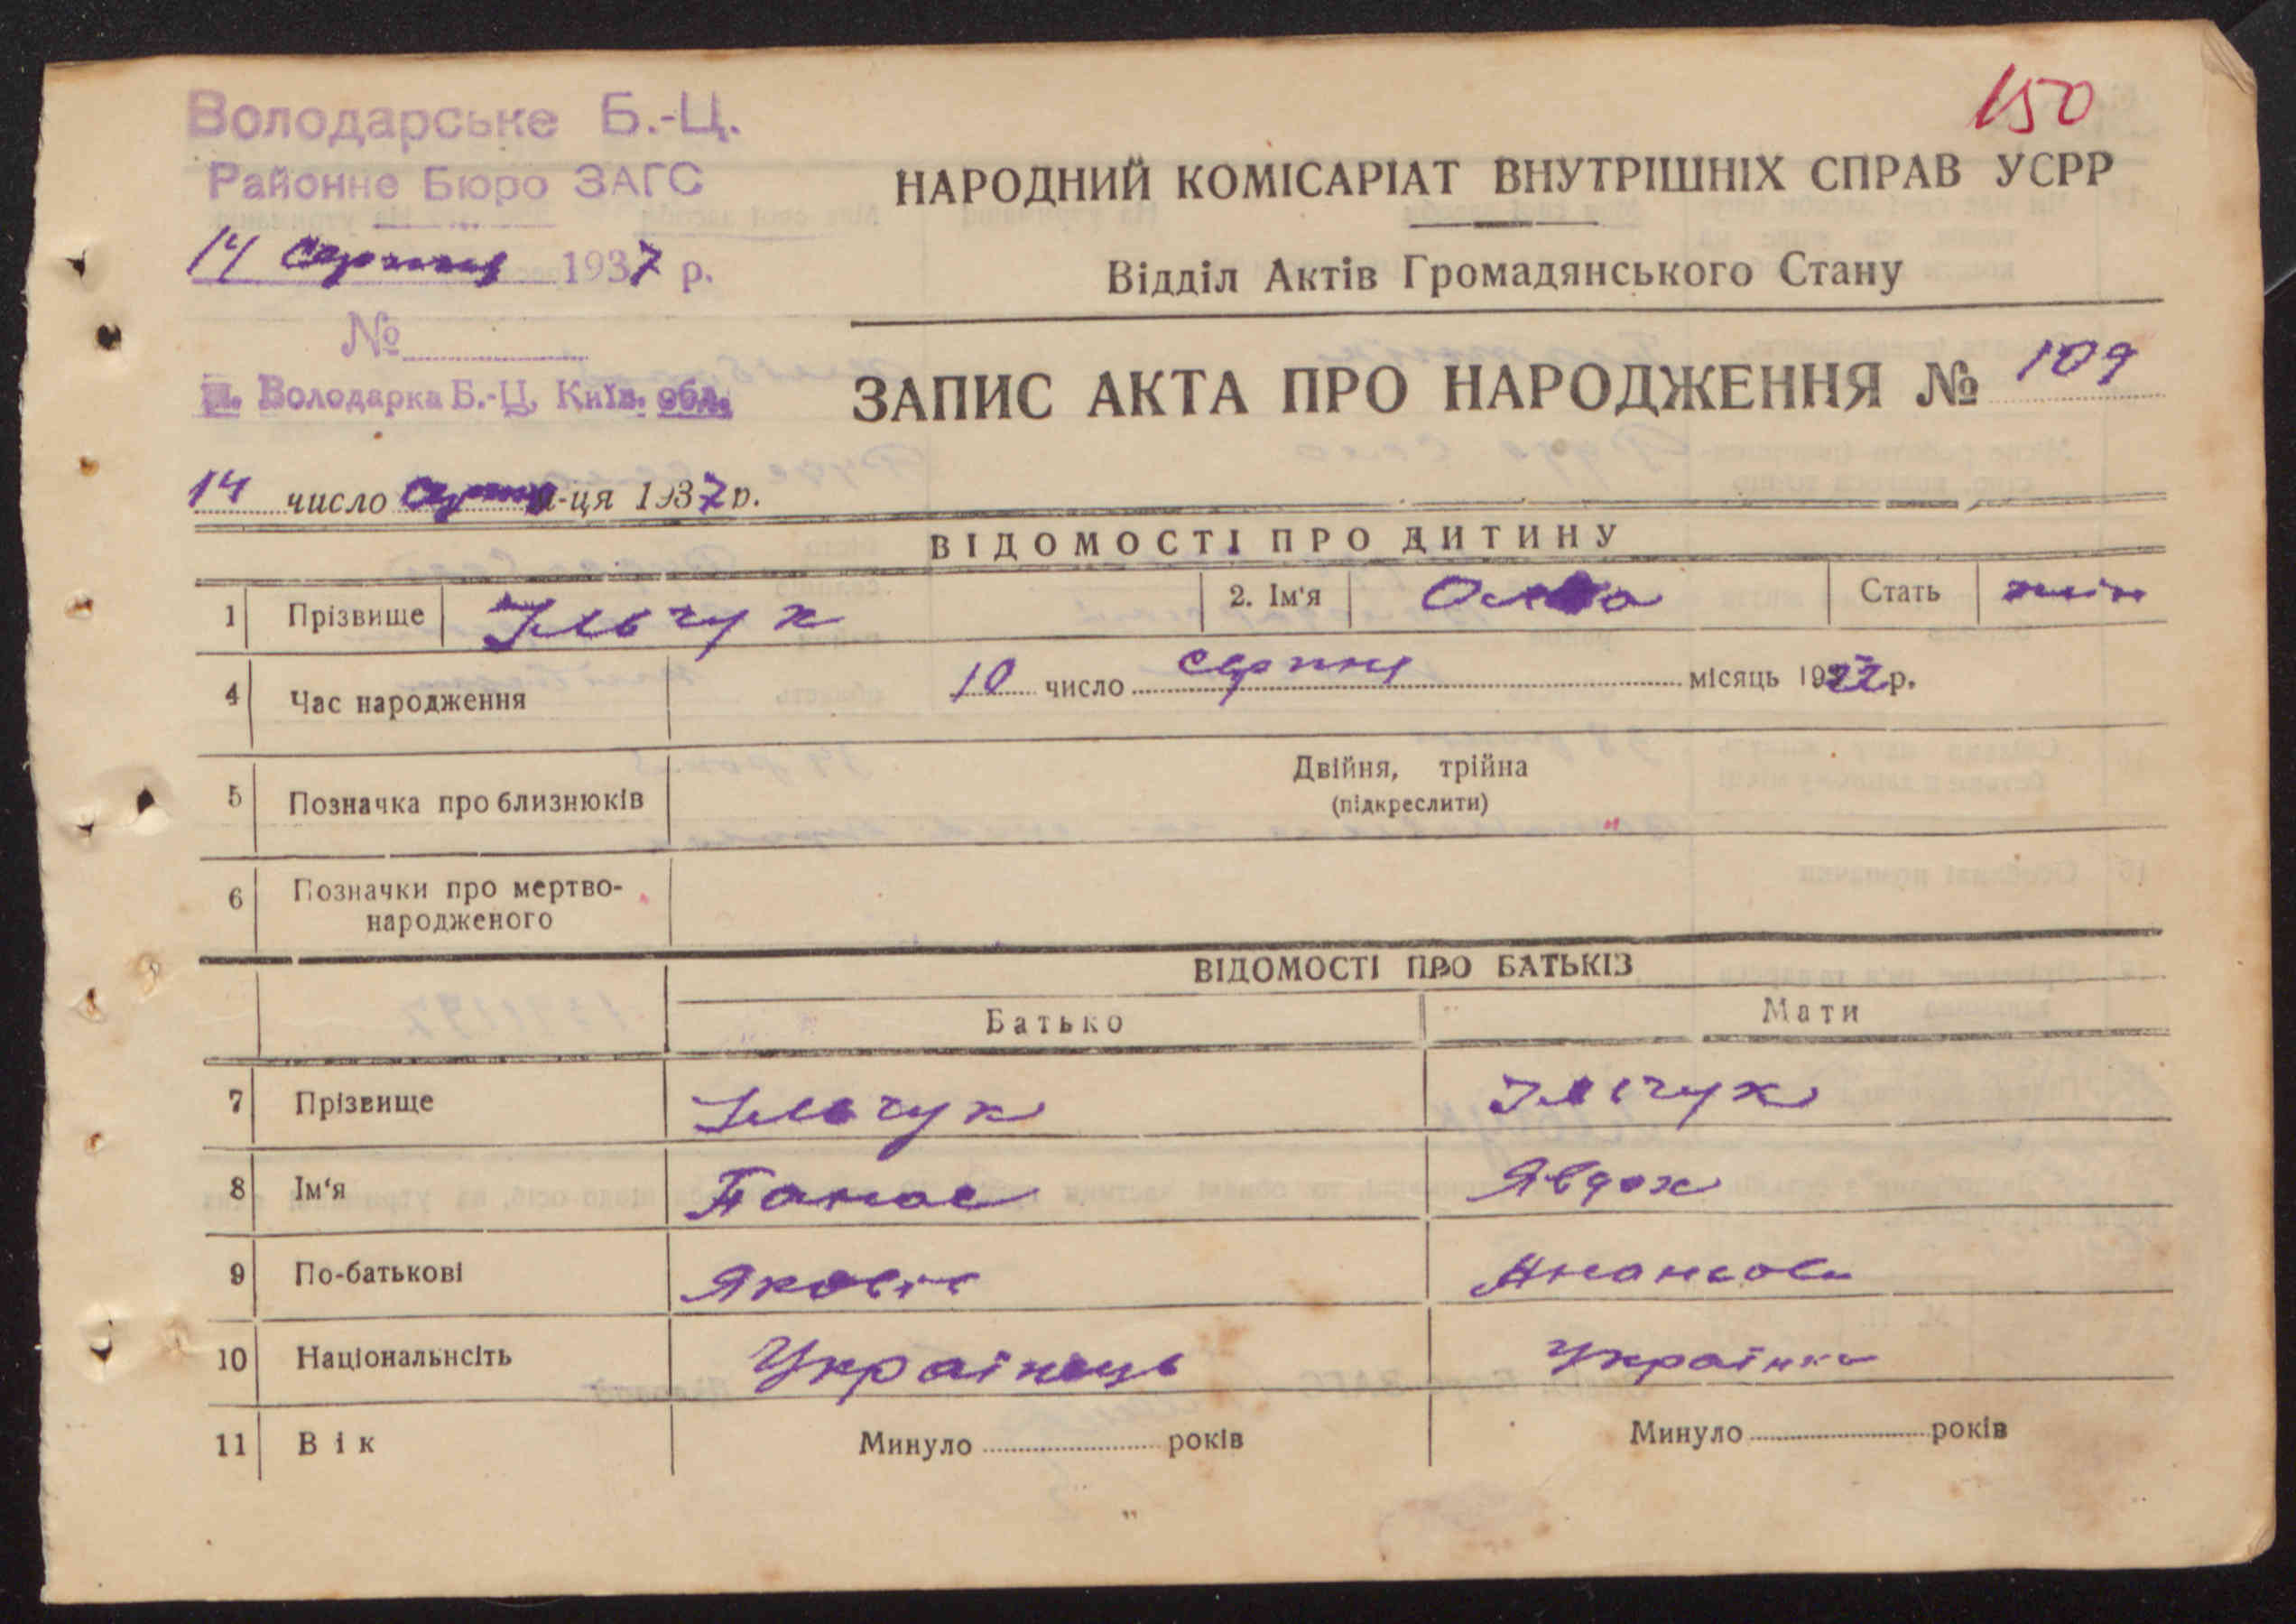 150
Володарське Б.-Ц.
Районне Бюро ЗАГС
14 серпня 1937 р.
№
Володарка Б.-Ц. Київ. обл.
НАРОДНИЙ КОМІСАРІАТ ВНУТРІШНІХ СПРАВ УСРР
Відділ Актів Громадянського Стану
ЗАПИС АКТА ПРО НАРОДЖЕННЯ № 109
14 число серпня м-ця 1937 р.
ВІДОМОСТІ ПРО ДИТИНУ
1 Прізвище Ільчук 2. Ім'я Ольга Стать жін
4 Час народження 10 число серпня місяць 1922 р.
5 Позначка про близнюків Двійня, трійна
(підкреслити)
6 Позначки про мертво-
народженого
ВІДОМОСТІ ПРО БАТЬКІВ
Батько Мати
7 Прізвище Ільчук Ільчук
8 Ім'я Панас Явдох
9 По-батькові Яковів
10 Національнсіть Українець Українка
11 Вік Минуло років Минуло років